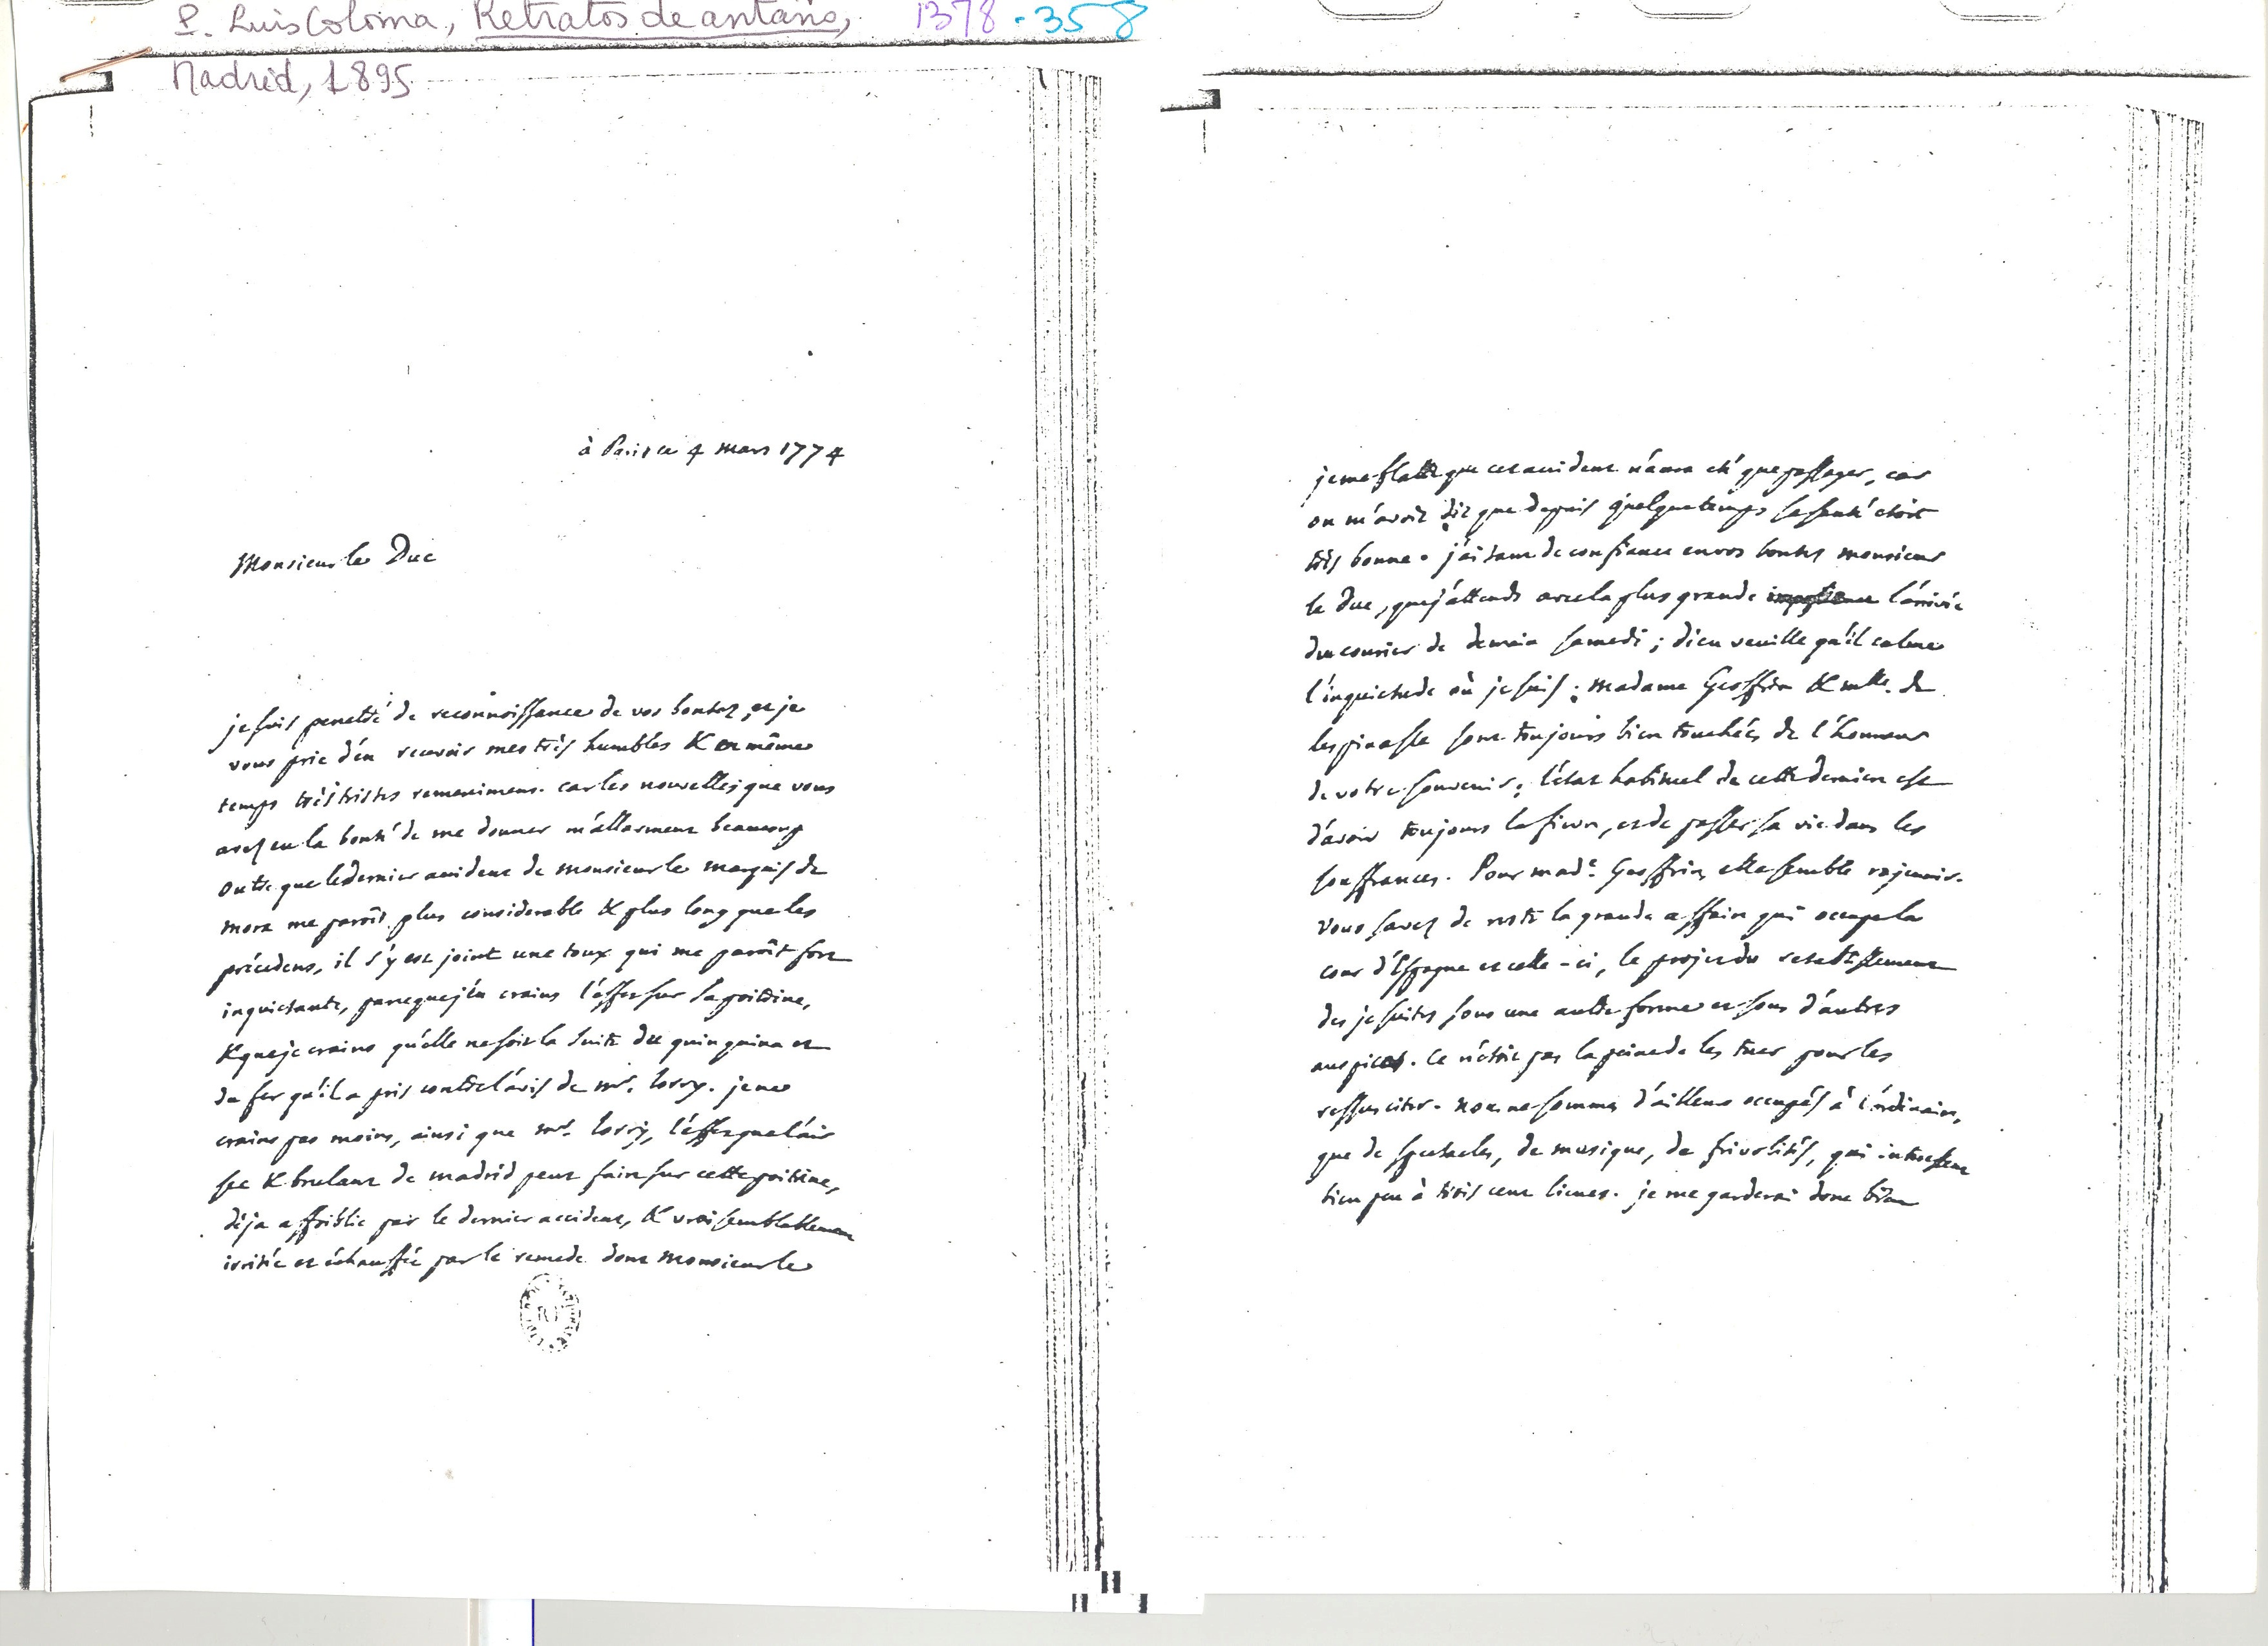 P. Luis Coloma, Retratos de antaño, 1378-358
Madrid, 1895
à Paris ce 4 mars 1774
Monsieur le Duc
je suis penetré de reconnoissance de vos bontez, et je
vous prie d'en recevoir mes très humbles & en même
temps très tristes remercimens. car les nouvelles que vous
avez eu la bonté de me donner m'allarment beaucoup
outre que le dernier accident de monsieur le marquis de
mora me paroît plus considerable & plus long que les
précedens, il s'y est joint une toux qui me paroît fort
inquietante, parceque j'en crains l'effet sur sa poitrine,
& que je crains qu'elle ne soit la suite du quinquina et
du fer qu'il a pris contre l'avis de mr. lorry. je ne
crains pas moins, ainsi que mr. lorry, l'effet que l'air
sec & brulant de madrid peut faire sur cette poitrine,
déja affoiblie par le dernier accident, & vraisemblablement
irritée et échauffée par le remede dont monsieur le
je me flatte que cet accident n'aura été que passager, car
on m'avoit dit que depuis quelque temps sa santé étoit
très bonne. j'ai tant de confiance en vos bontés monsieur
le Duc, que j'attends avec la plus grande impatience l'arrivée
du courier de demain samedi; dieu veuille qu'il calme
l'inquietude où je suis; madame Geoffrin & mlle. de
lespinasse sont toujours bien touchées de l'honneur
de votre souvenir; l'état habituel de cette derniere est
d'avoir toujours la fievre, et de passer sa vie dans les
souffrances. Pour made. Geoffrin, elle semble rajeunir.
vous savez de reste la grande affaire qui occupe la
cour d'Espagne et celle-ci, le projet du retablissement
des jesuites sous une autre forme et sous d'autres
auspices. Ce n'étoit pas la peine de les tuer pour les
ressusciter. nous ne sommes d'ailleurs occupés à l'ordinaire,
que de spectacles, de musique, de frivolités, qui interessent
bien peu à trois cent lieues. je me garderai donc bien